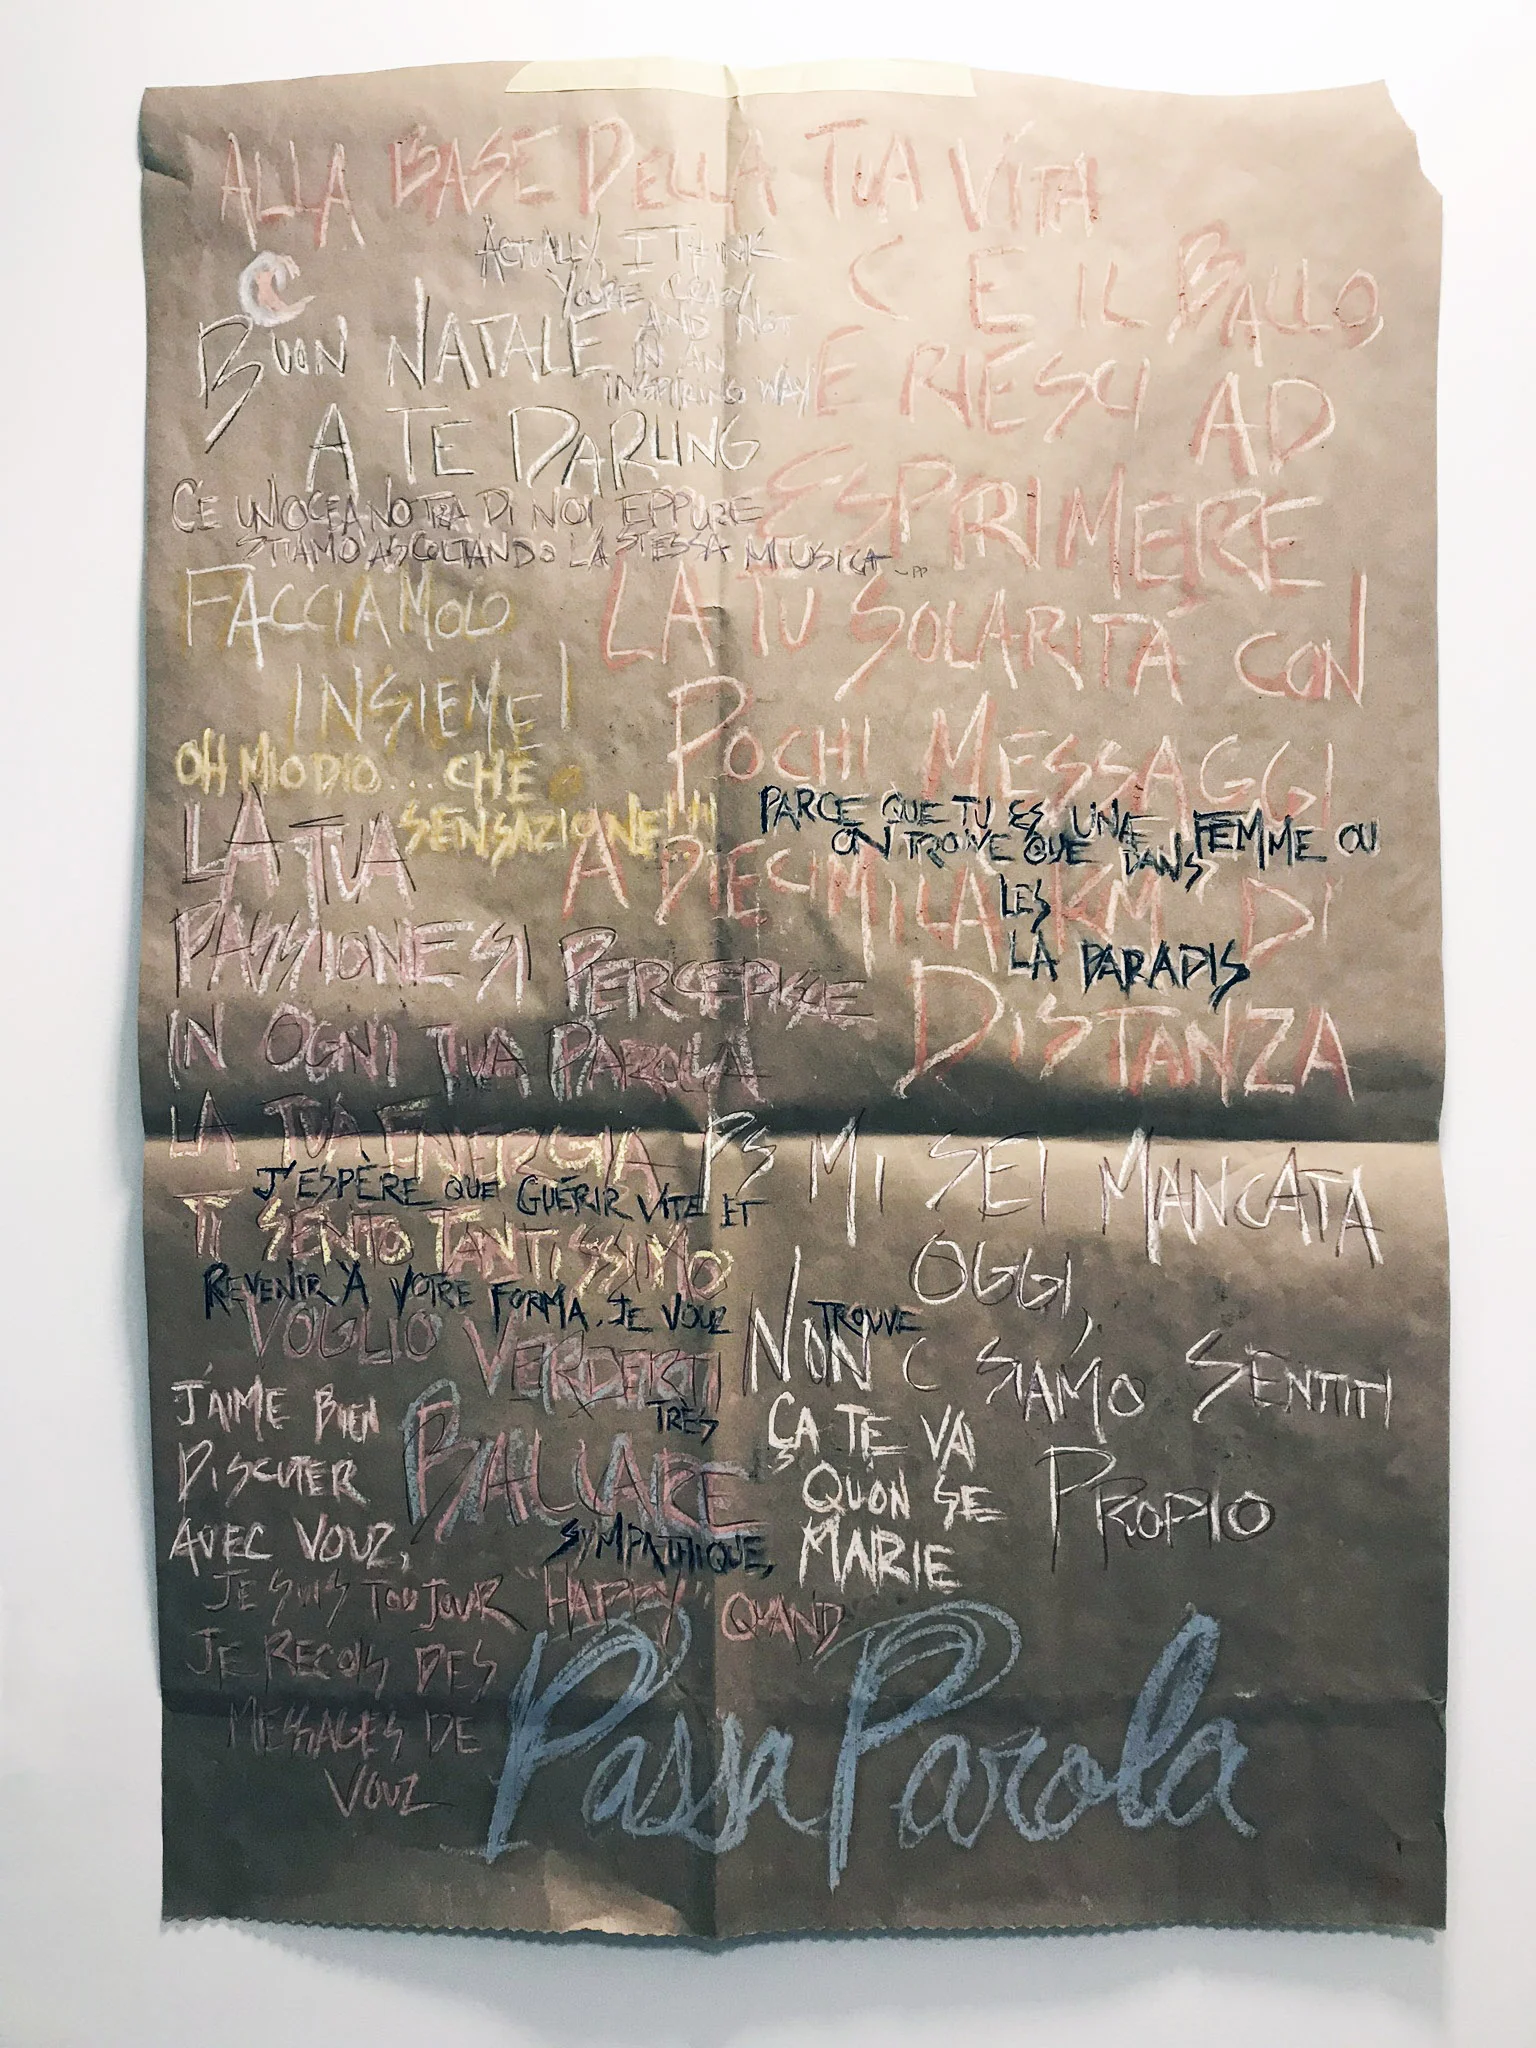 ALLA BASE DELLA TUA VITA
C E IL BALLO,
E RIESCI AD
ESPRIMERE
LA TU SOLARITÁ CON
POCHI MESSAGGI
A DIECIMILA KM DI
DISTANZA
ACTUALLY I THINK
YOURE CRAZY
AND NOT
IN AN
INSPIRING WAY
C
BUON NATALE
A TE DARLING
CE UNOCEANO TRA DI NOI EPPURE
STIAMO ASCOLTANDO LA STESSA MIUSICA
FACCIAMOLO
INSIEME!
OH MIO DIO... CHE
SENSAZIONE!!!!
PARCE QUE TU ES UNE FEMME OU
ON TROVE QUE DANS
LES
LA PARADIS
LA TUA
PASSIONE SI PERCEPISCE
IN OGNI TUA PAROLA
LA TUA ENERGIA
TI SENTO TANTISSSIMO
VOGLIO VERDERTI
BALLARE
PS MI SEI MANCATA
OGGI,
NON C SIAMO SENTITI
PROPIO
J'ESPÈRE QUE GUÉRIR VITE ET
REVENIR À VOTRE FORMA, JE VOUZ TROUVE
TRÈS
SYMPATHIQUE,
J'AIME BIEN
DISCUTER
AVEC VOUZ,
JE SUIS TOUJOUR "HAPPY" QUAND
JE REÇOIS DES
MESSAGES DE
VOUZ
ÇA TE VA
QUON SE
MARIE
PassaParola